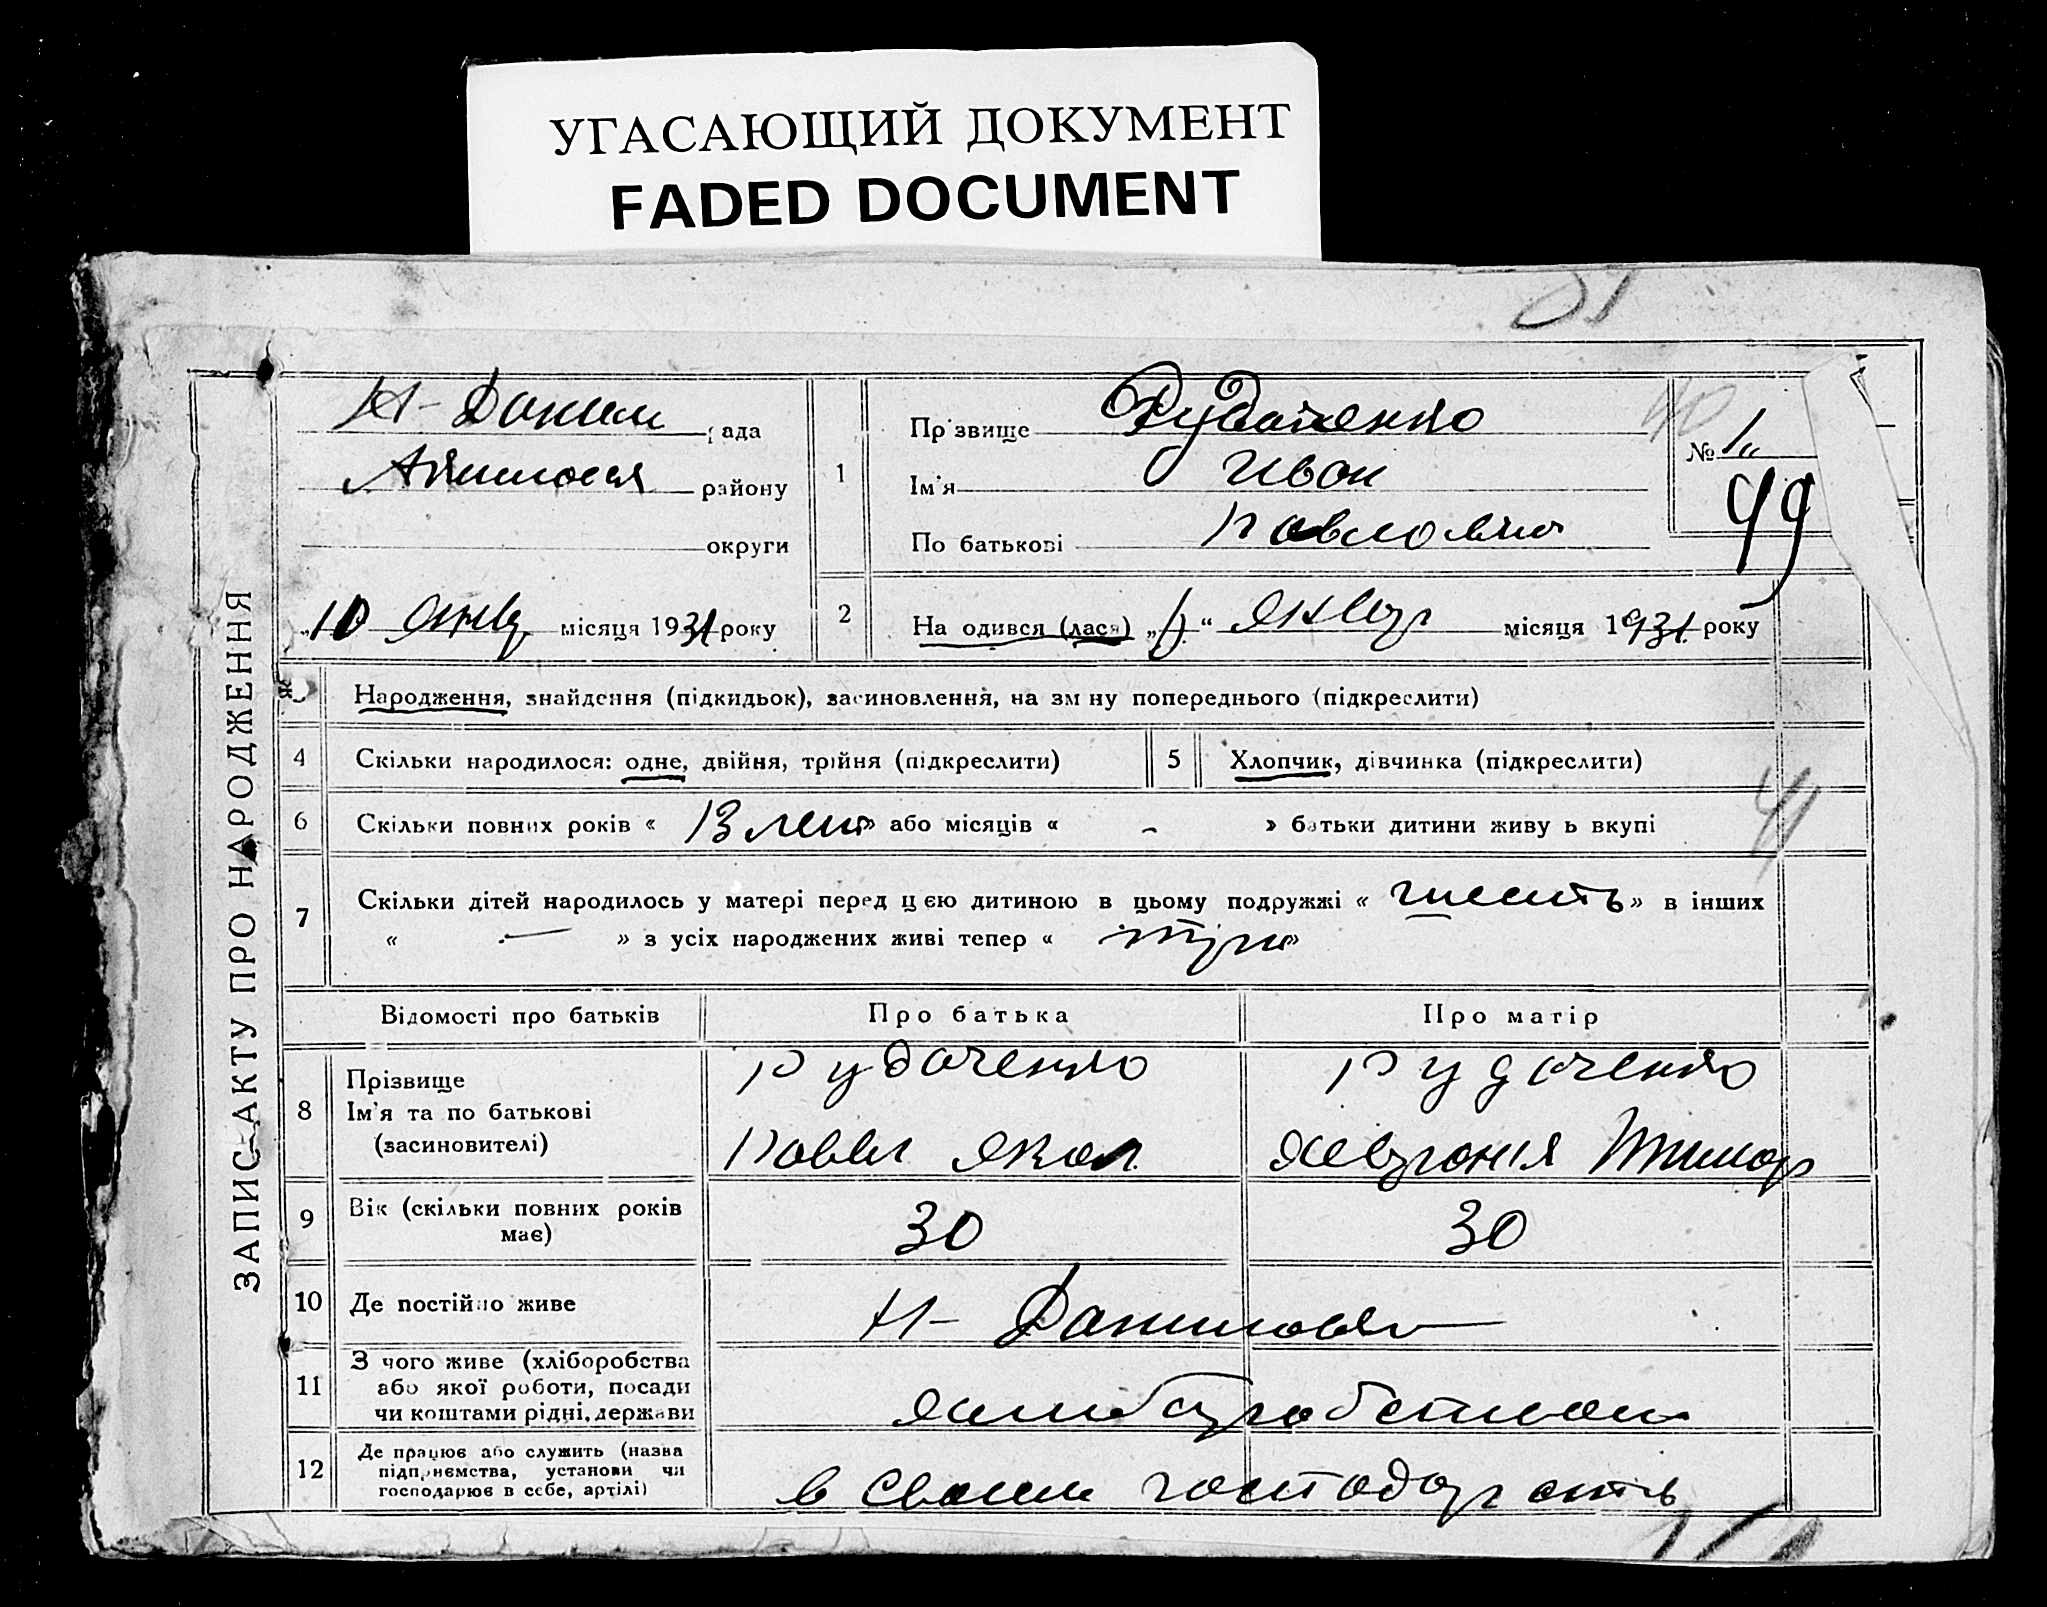 УГАСАЮЩИЙ ДОКУМЕНТ
FADED DOCUMENT
ЗАПИС АКТУ ПРО НАРОДЖЕННЯ
Н-Даним рада
району
округи
"10 янвр місяця 1931 року
1
Прізвище Рудаченко
Ім'я Иван
По батькові Павлович
№ 1
49
40
2
На одився (лася) " " янвор місяця 1931 року
Народження, знайдення (підкидьок), засиновлення, на зм ну попереднього (підкреслити)
4 Скільки народилося: одне, двійня, трійня (підкреслити) 5 Хлопчик, дівчинка (підкреслити)
6 Скільки повних років « 13 лет » або місяців « - » батьки дитини живу ь вкупі
41
7 Скільки дітей народилось у матері перед цією дитиною в цьому подружжі « шесть » в інших
« — » з усіх народжених живі тепер « три »
Відомості про батьків Про батька Про матір
8 Прізвище
Ім'я та по батькові
(засиновителі)
Рудаченко Рудаченко
Павел Яков Тимоф
9 Вік (скільки повних років
має)
30 30
10 Де постійно живе Н-Даниловка
11 З чого живе (хліборобства
або якої роботи, посади
чи коштами рідні, держави
12 Де працює або служить (назва
підприємства, установи чи
господарює в себе, артілі)
в своем